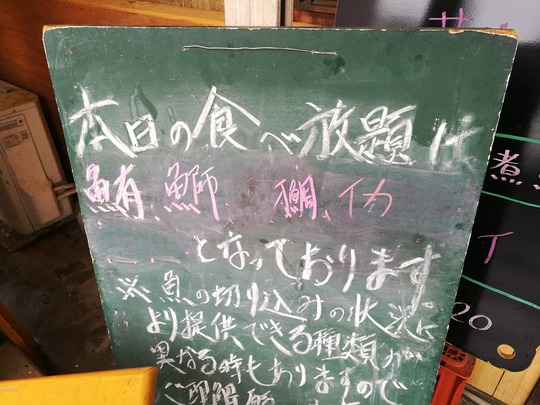 本日の食べ放題は
鮪、鰤、鯛、イカ
となっております
※魚の切り込みの状況に
より提供できる種類が
異なる時もありますので
ご理解願
サ
煮
イ
20